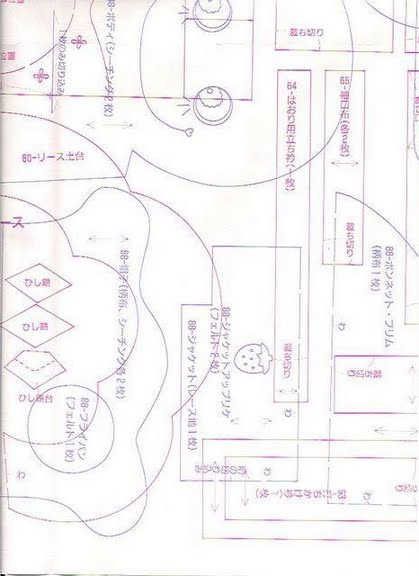 裁ち切り
88-ボディ(シーチング2枚)
1枚のみ切り込み
60-リース土台
64-はおり用立ち衿(1枚)
65-袖口布(各2枚)
裁ち切り
88-ボンネット・ブリム
(柄布1枚)
わ
ース
88-帽子(柄布、シーチング各2枚)
ひし餅
ひし餅
ひし餅台
88-フライパン
(フェルト1枚)
わ
88-ジャケットアップリケ
(フェルト2枚)
88-ジャケット(レース地1枚)
裁ち切り
わ
裁ち切り
わ
前の切り込み
わ
53-打ちかけ衿(1枚)